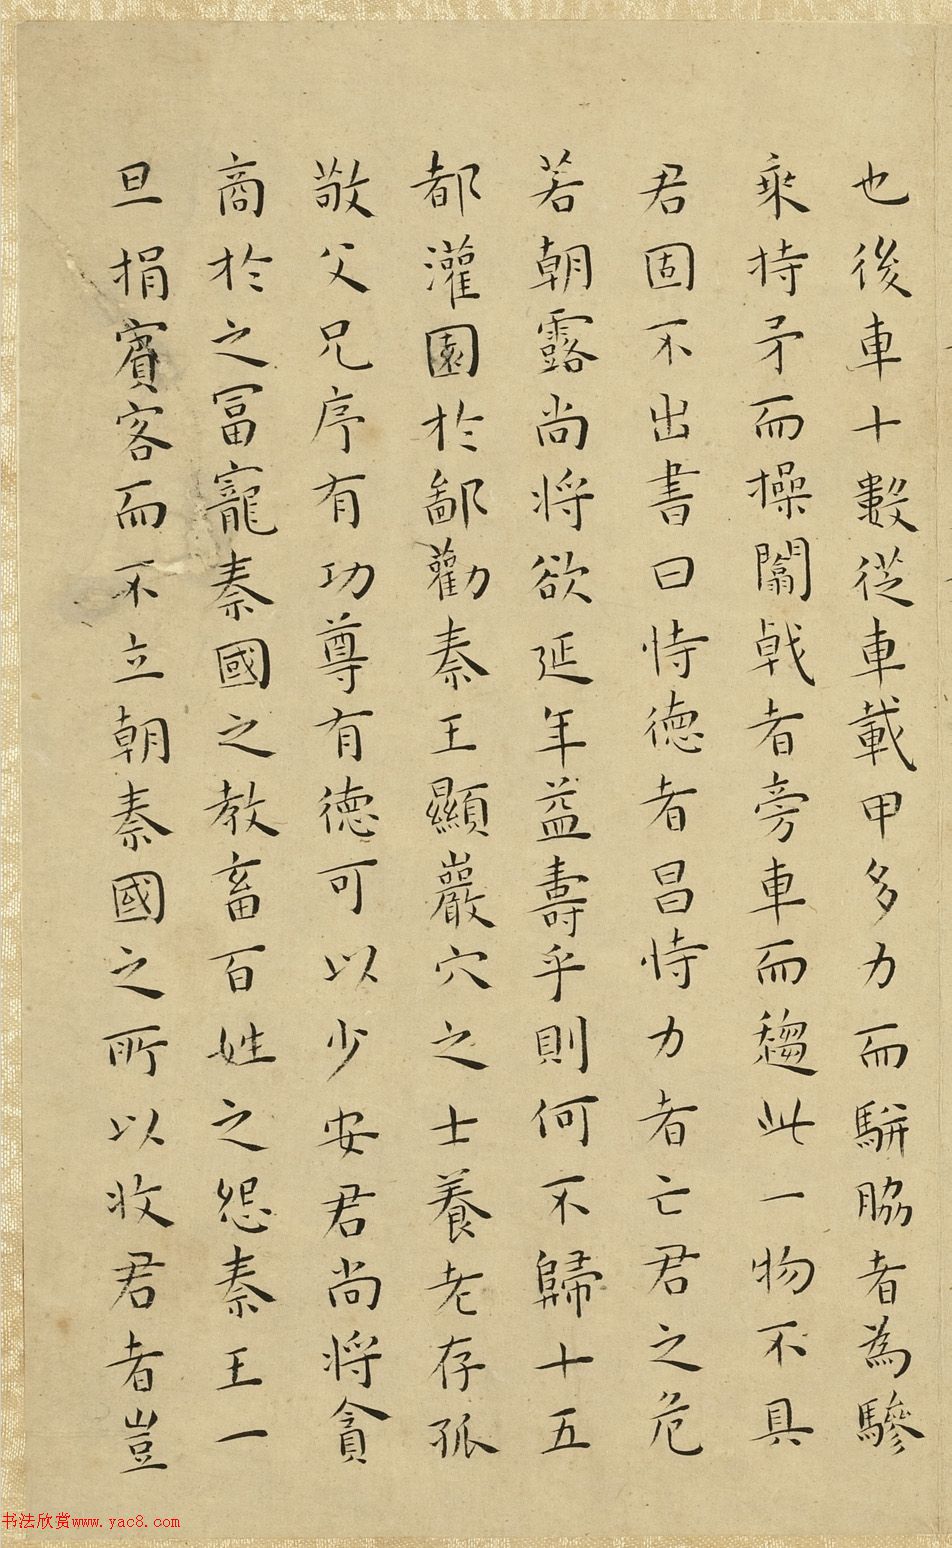 也後車十數從車載甲多力而騈脇者為驂
乘持矛而操闟戟者旁車而趨此一物不具
君固不出書曰恃德者昌恃力者亡君之危
若朝露尚將欲延年益壽乎則何不歸十五
都灌園於鄙勸秦王顯巖穴之士養老存孤
敬父兄序有功尊有德可以少安君尚將貪
商於之冨寵秦國之教畜百姓之怨秦王一
旦捐賓客而不立朝秦國之所以收君者豈
书法欣赏www.yac8.com